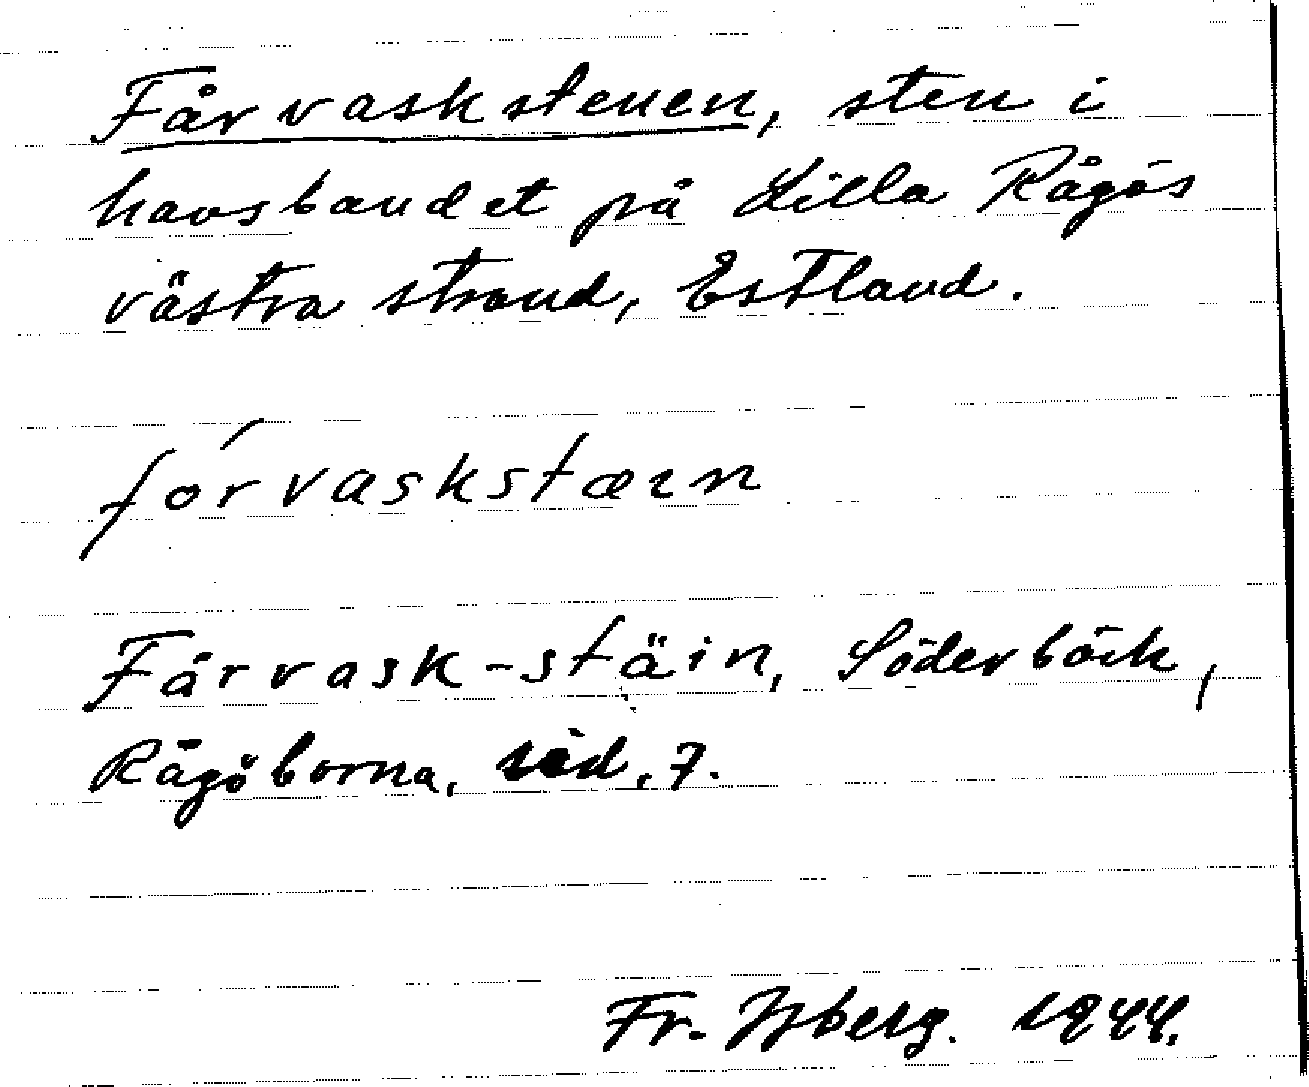 Fårvaskstenen, sten i
havsbandet på Lilla Rågös
västra strand, Estland.
fórvaskstæın
Fårvask-stäin, Söderbäck,
Rågöborna, sid. 7.
Fr. Isberg. 1944.